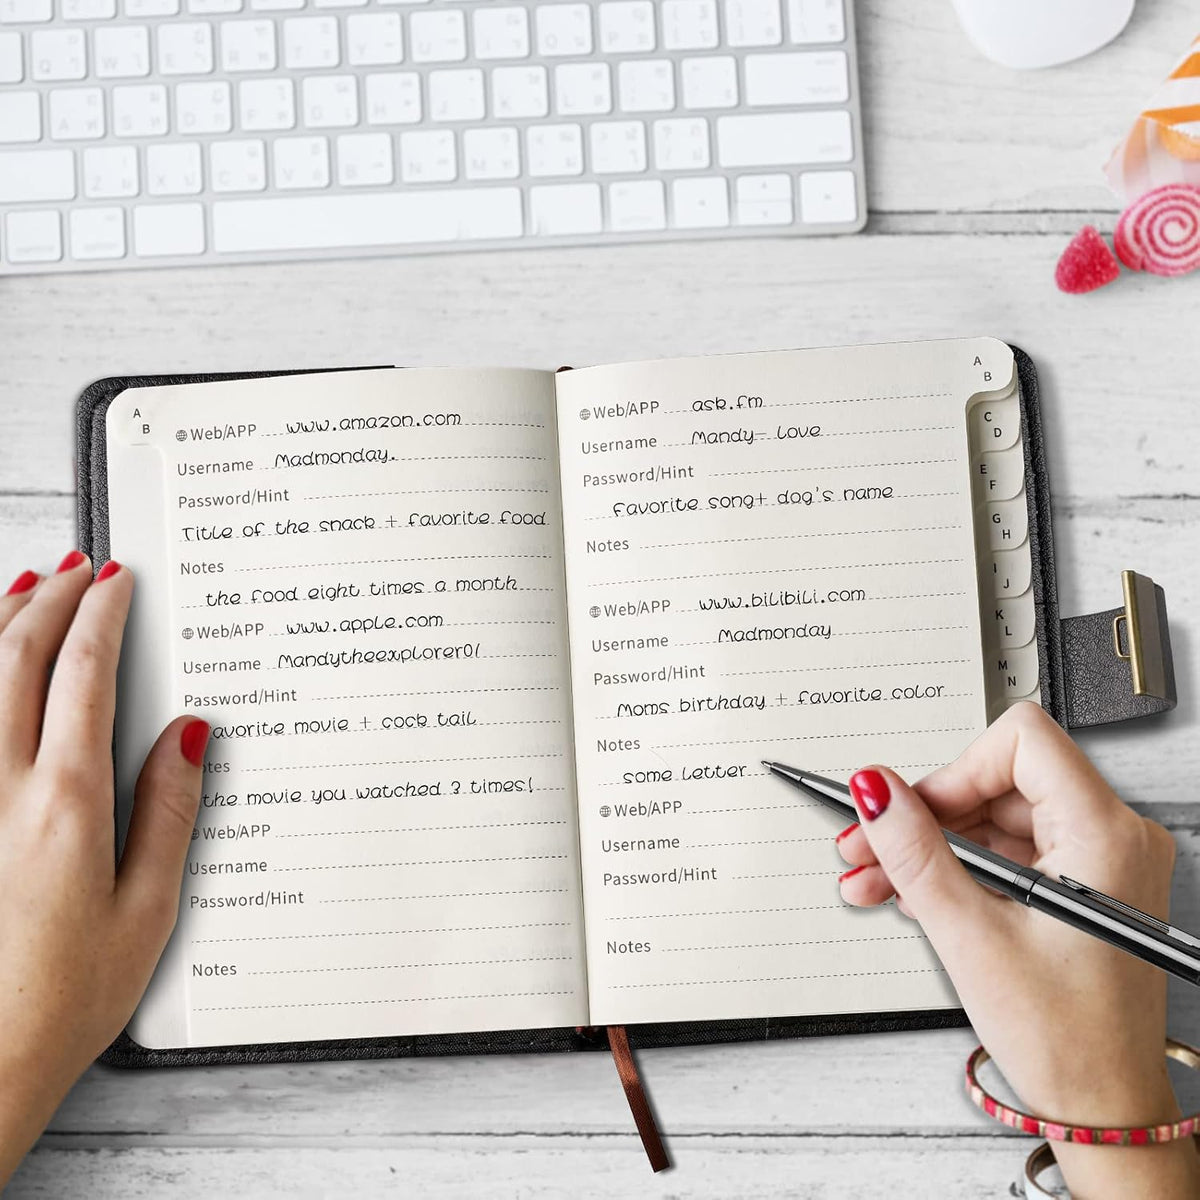 A
B
Web/APP www.amazon.com
Username Madmonday.
Password/Hint
Title of the snack + favorite food
Notes
the food eight times a month
Web/APP www.apple.com
Username Mandytheexplorer01
Password/Hint
avorite movie + cock tail
otes
the movie you watched 3 times!
Web/APP
Username
Password/Hint
Notes
Web/APP ask.fm
Username Mandy- Love
Password/Hint
favorite song+ dog's name
Notes
Web/APP www.bilibili.com
Username Madmonday
Password/Hint
Moms birthday + favorite color
Notes
some letter
Web/APP
Username
Password/Hint
Notes
A
B
C
D
E
F
G
H
I
J
K
L
M
N